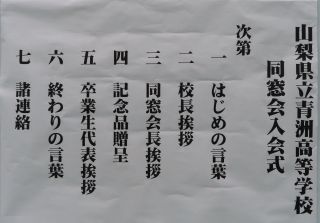 山梨県立青洲高等学校
同窓会入会式
次第
一 はじめの言葉
二 校長挨拶
三 同窓会長挨拶
四 記念品贈呈
五 卒業生代表挨拶
六 終わりの言葉
七 諸連絡